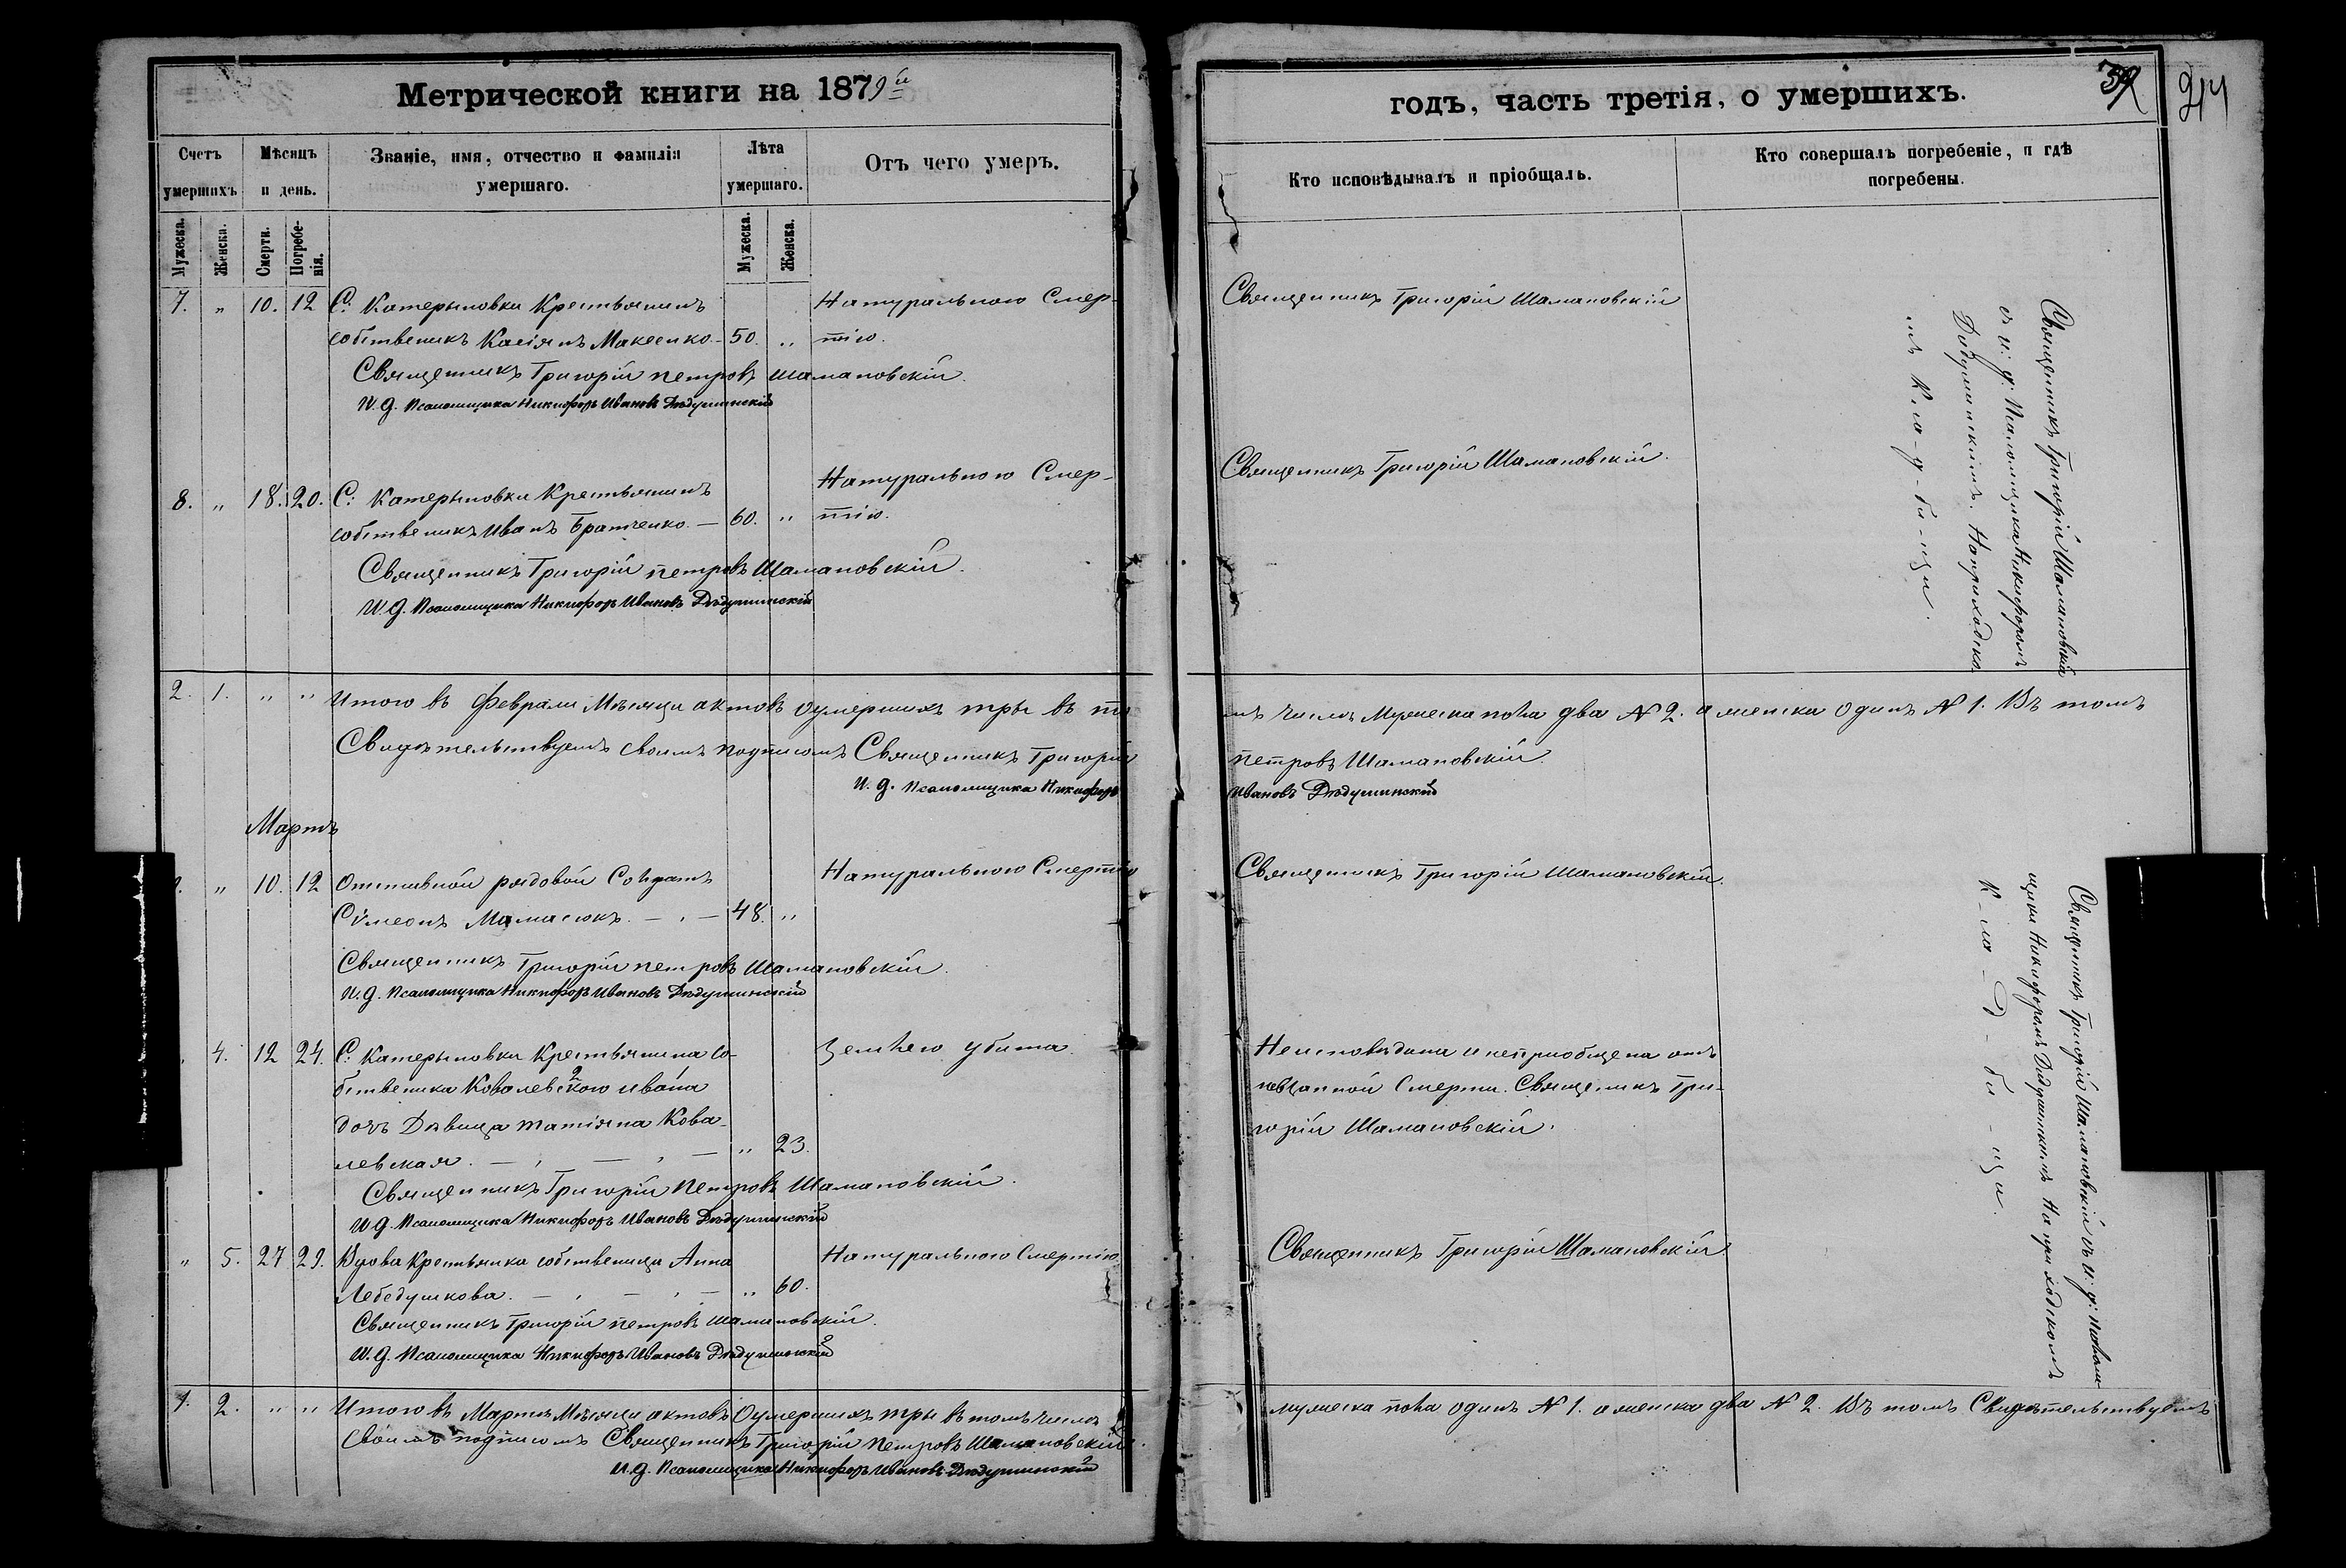 Метрической книги на 1879й
Счетъ умершихъ
Мѣсяцъ и день.
Званіе, имя, отчество и фамилія умершаго.
Лѣта умершаго.
Отъ чего умеръ.
Мужеска.
Женска.
Смерти.
Погребенія.
Мужеска.
Женска.
7. " 10. 12 С: Катерыновки Крестьянинъ Натуральною Смер-
собственикъ Касіянъ Макеенко 50. " тію.
Священникъ Григорій Петровъ Шамановскій.
И. д. Псаломщика Никифоръ Ивановъ Дѣдушинскій
8. " 18. 20. С: Катерыновки Крестьянинъ Натуральною Смер-
собственикъ Иванъ Братченко — 60. " тію.
Священникъ Григорій Петровъ Шамановскій.
И. д. Псаломщика Никифоръ Ивановъ Дѣдушинскій
2. 1. " " Итого въ Феврали Мѣсяци актовъ оумершихъ тры въ то
Свидѣтельствуемъ своимъ подписомъ Священникъ Григорій
И. д. Псаломщика Никифоръ
Мартъ
" 10. 12 Отставной рядовой Солдатъ Натуральною Смертію
Сѵмеонъ Мамасюкъ. — 48. "
Священникъ Григорій Петровъ Шамановскій.
И. д. Псаломщика Никифоръ Ивановъ Дѣдушинскій
4. 12 24. С: Катерыновки Крестьянина со- Землею убита.
бственика Ковалевского Ивана
дочь Дѣвица Татіяна Кова-
левская. — " 23.
Священникъ Григорій Петровъ Шамановскій.
И. д. Псаломщика Никифоръ Ивановъ Дѣдушинскій
" 5. 27 29. Вдова Крестьянка собственица Анна Натуральною Смертію
Лебедушкова. — " 60.
Священникъ Григорій Петровъ Шамановскій.
И. д. Псаломщика Никифоръ Ивановъ Дѣдушинскій
1. 2. " " Итого въ Мартѣ Мѣсяци актовъ Оумершихъ тры въ томъ числѣ
своимъ подписомъ Священникъ Григорій Петровъ Шамановскій.
И. д. Псаломщика Никифоръ Ивановъ Дѣдушинскій
годъ, часть третія, о умершихъ.
Кто исповѣдывалъ и пріобщалъ.
Кто совершалъ погребеніе, и гдѣ погребены.
Священникъ Григорій Шамановскій
Священникъ Григорій Шамановскій.
Священникъ Григорій Шамановскій
съ и: д: Псаломщика Никифоромъ
Дѣдушинскимъ. На приходско
мъ К-ла-д-би-щи.
мъ числѣ Мужеска пола два N 2. а женска одинъ N 1. Въ томъ
Петровъ Шамановскій.
Ивановъ Дѣдушинскій
Священникъ Григорій Шамановскій.
Неисповѣдана и непріобщена отъ
невзапной Смерти. Священикъ Гри-
горій Шамановскій.
Священникъ Григорій Шамановскій
Священникъ Григорій Шамановскій съ и: д: Псалом-
щика Никифоромъ Дѣдушинскимъ На приходскомъ
К-ла-д-би-щи.
мужеска пола одинъ N 1. а женска два N 2. Въ томъ Свидѣтельствуемъ